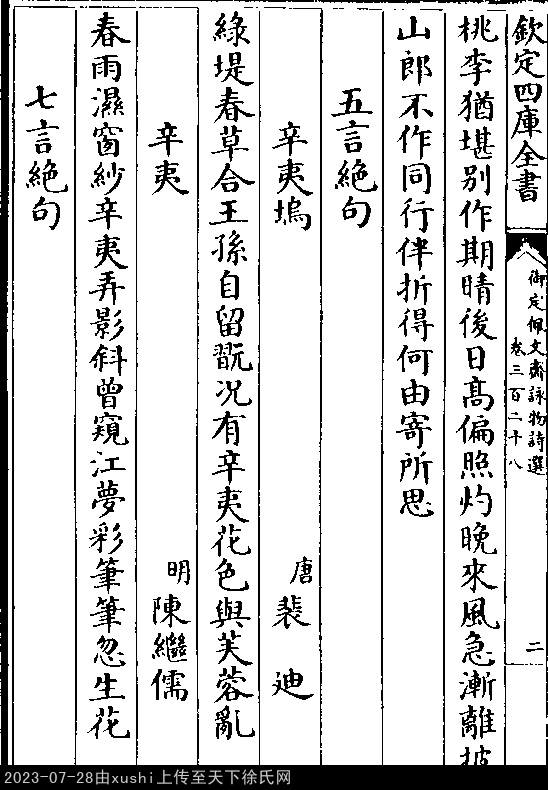 欽定四庫全書
御定佩文齋詠物詩選
卷三百二十八
二
桃李猶堪別作期晴後日髙偏照灼晚來風急漸離披
山郎不作同行伴折得何由寄所思
五言絶句
辛夷塢
唐 裴迪
綠堤春草合王孫自留翫况有辛夷花色與芙蓉亂
辛夷
明 陳繼儒
春雨濕窗紗辛夷弄影斜曾窺江夢彩筆筆忽生花
七言絶句
2023-07-28由xushi上传至天下徐氏网